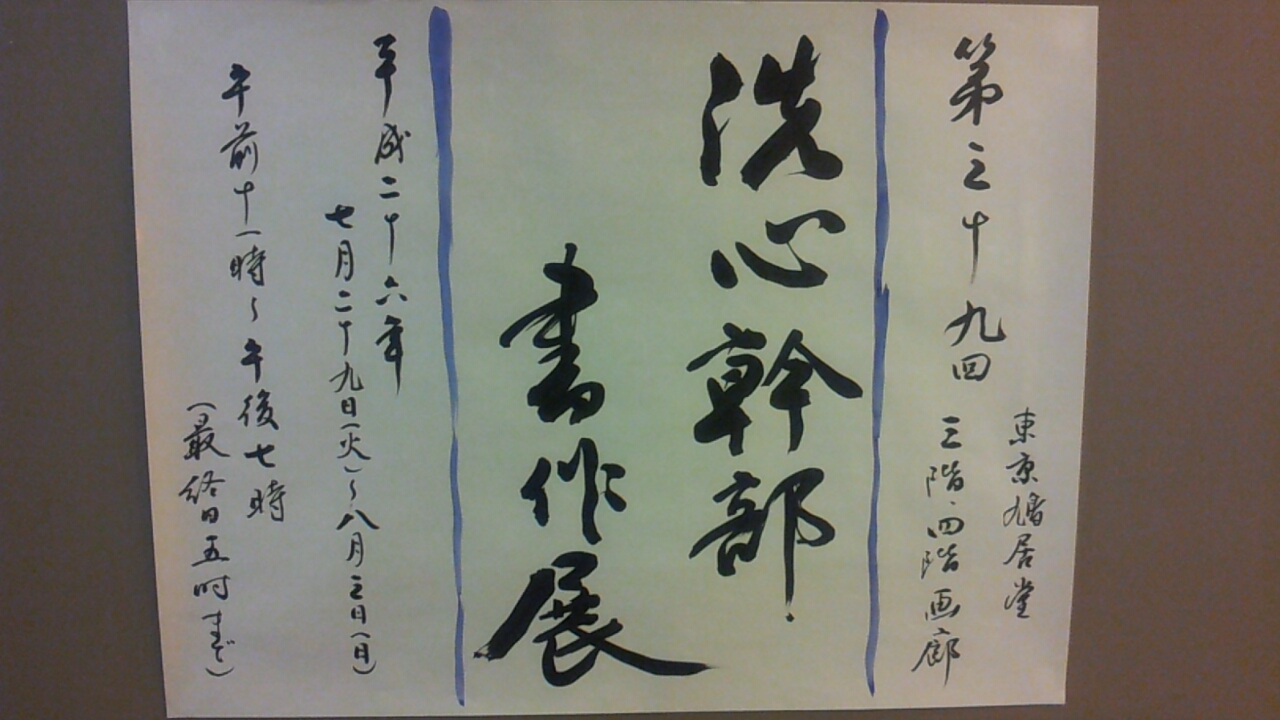 第三十九回
東京鳩居堂
三階・四階画廊
洗心幹部
書作展
平成二十六年
七月二十九日(火)~八月三日(日)
午前十一時~午後七時
(最終日五时まで)